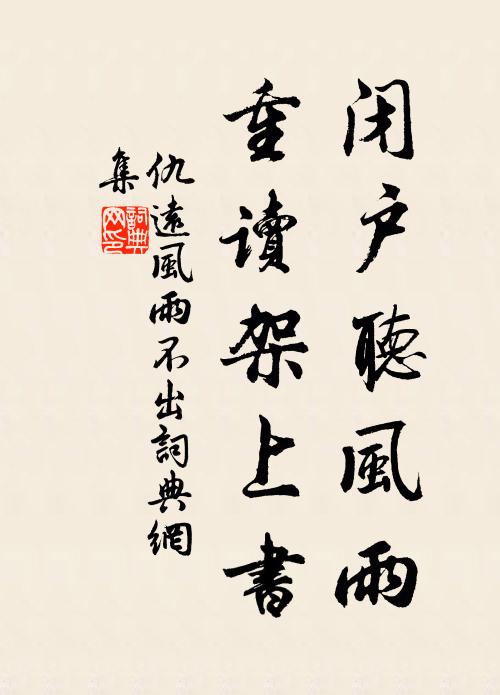 闭户聽風雨
重讀架上書
仇遠風雨不出詞典網
集
詞典网印